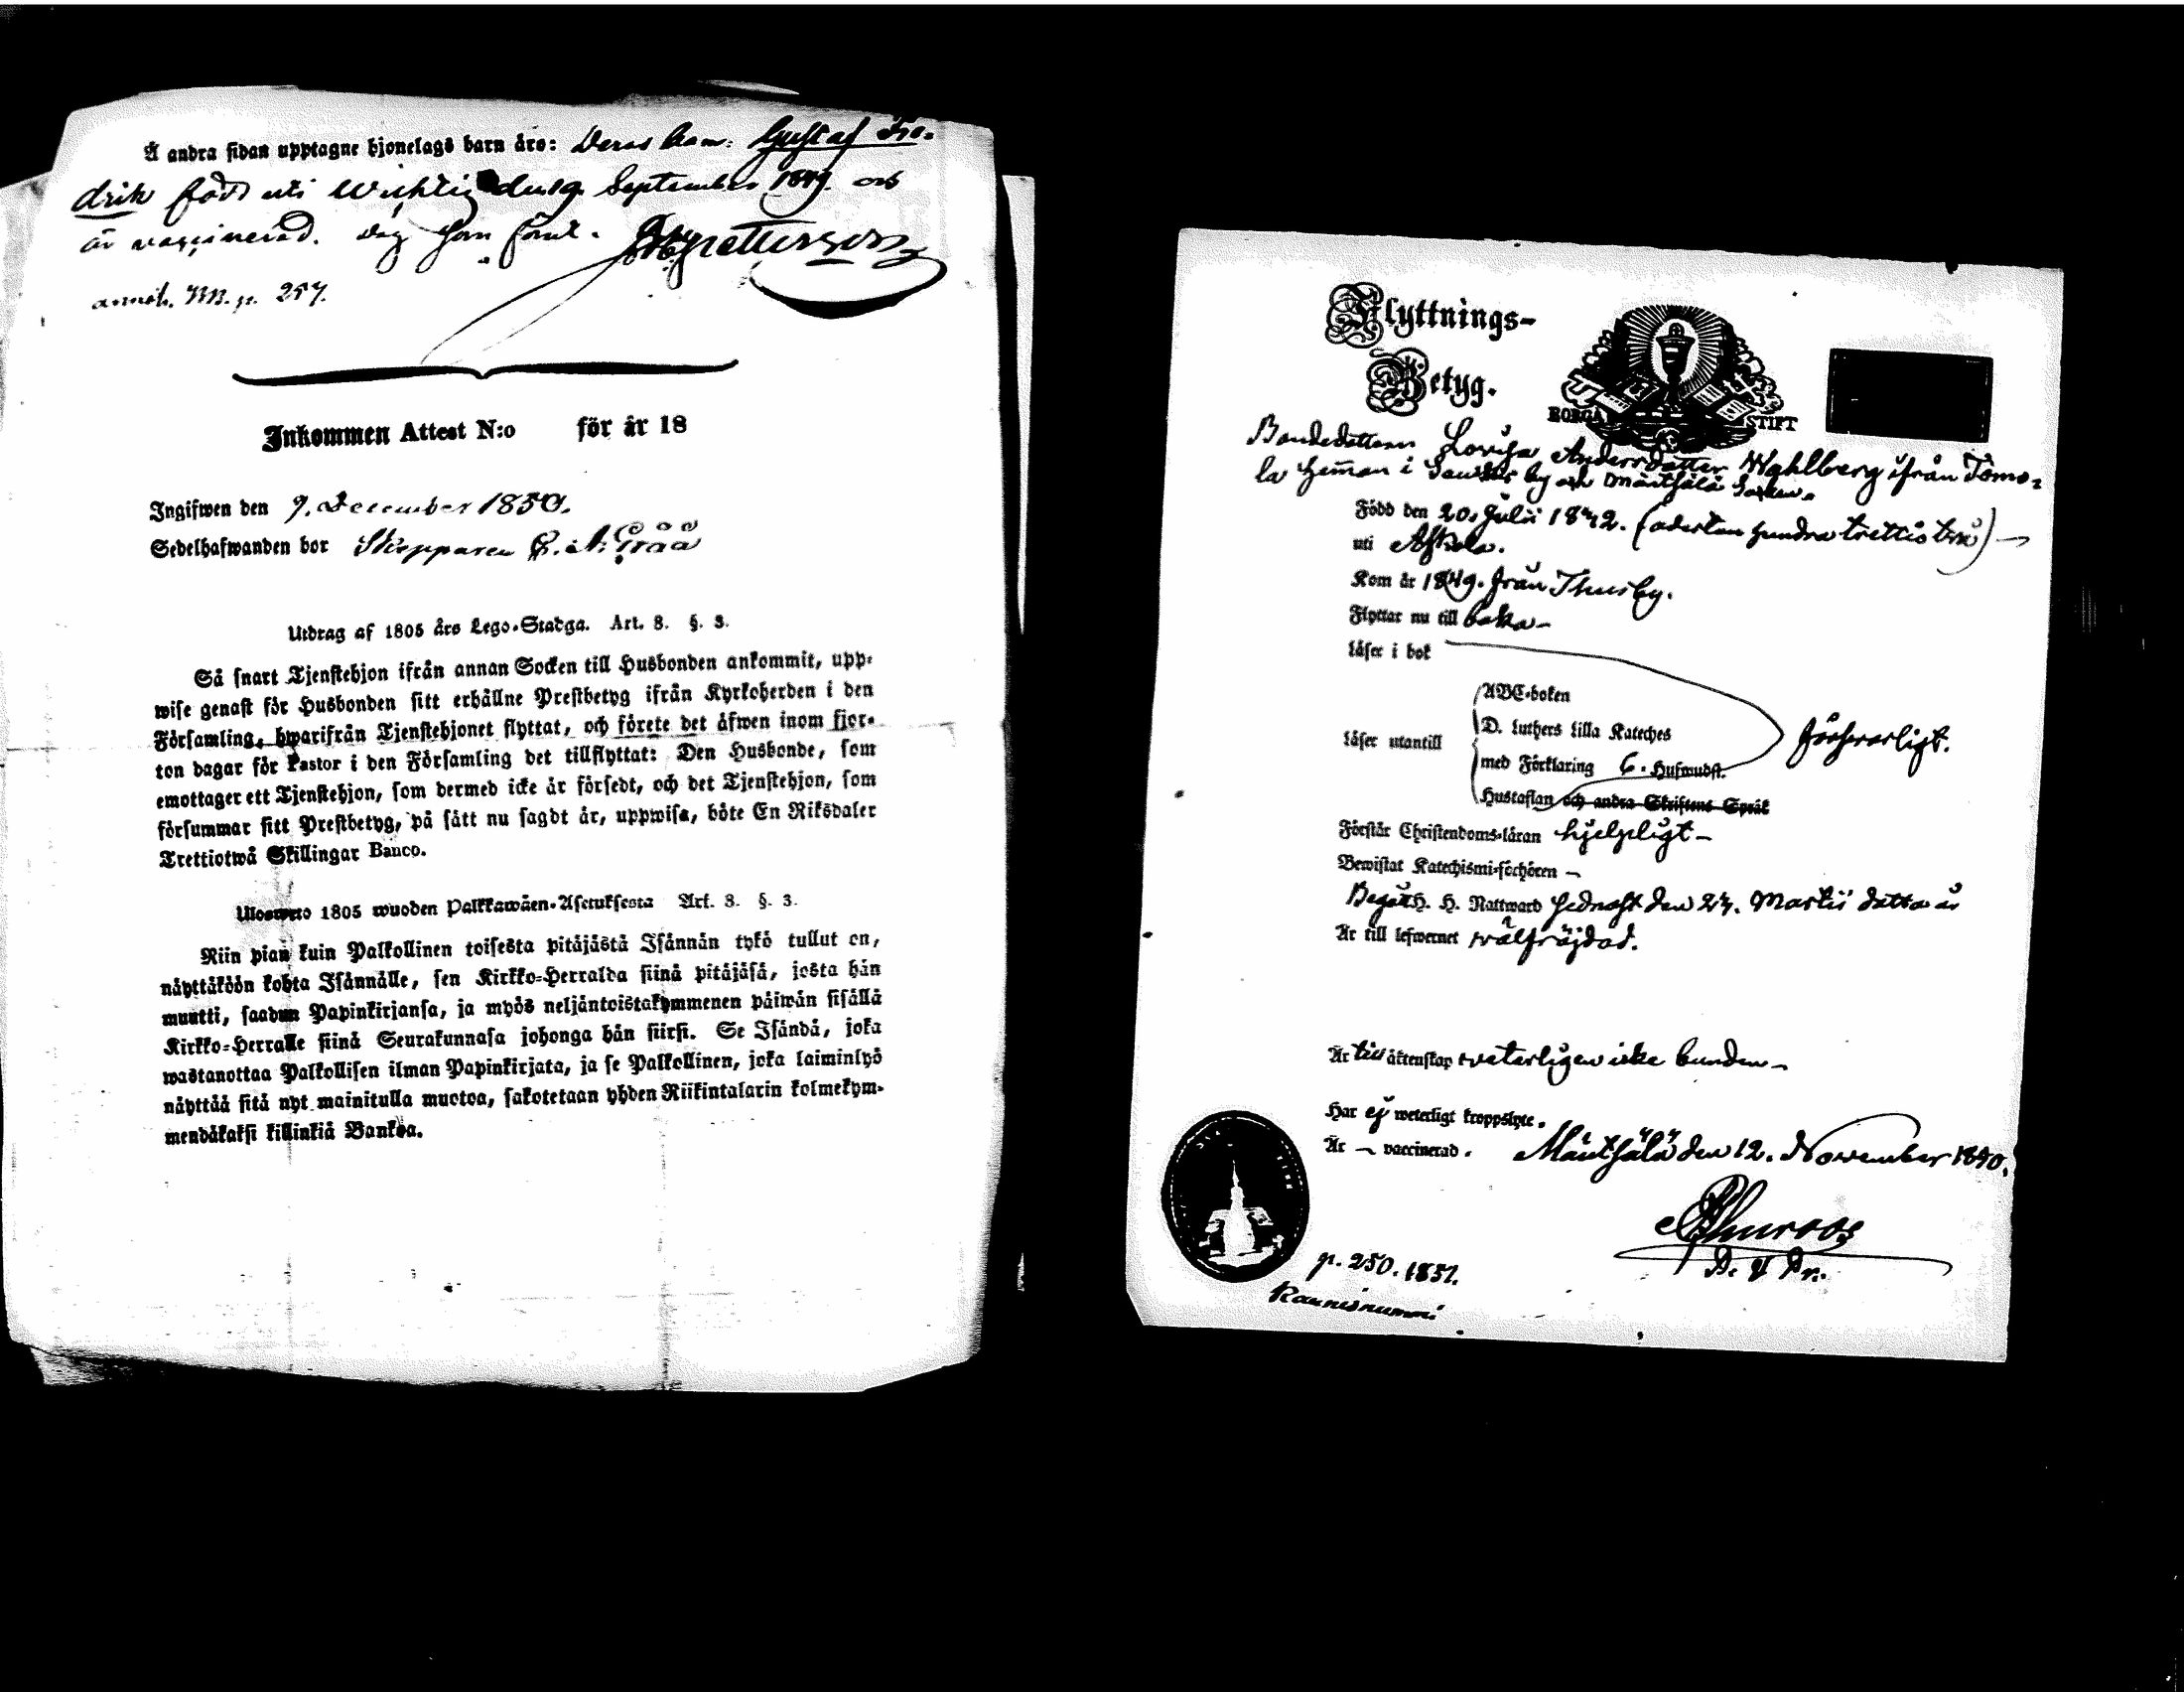 Å andra sidan upptagne hjonelags barn äro: Deras barn: Gustaf Fre-
drik född uti Wichtis den 19 September 1849. och
är vaccinerad. dag som förut. Pettersson
anmäh. M.B. p. 257.
Inkommen Attest N:o för år 18
Ingifwen den 9. December 1850.
Sedelhafwanden bor Skepparen Gråå
Utdrag af 1805 års Lego-Stadga. Art. 8. §. 3.
Så snart Tjenstehjon ifrån annan Socken till Husbonden ankommit, upp-
wise genast för Husbonden sitt erhållne Prestbetyg ifrån Kyrkoherden i den
Församling, hwarifrån Tjenstehjonet flyttat, och förete det äfwen inom fjor-
ton dagar för Pastor i den Församling det tillflyttat: Den Husbonde, som
emottager ett Tjenstehjon, som dermed icke är försedt, och det Tjenstehjon, som
försummar sitt Prestbetyg, på sätt nu sagdt är, uppwisa, böte En Riksdaler
Trettiotwå Skillingar Banco.
Ulosweto 1805 wuoden Palkkawäen-Asetuksesta Art. 8. §. 3.
Niin pian kuin Palkollinen toisesta pitäjästä Isännän tykö tullut on,
näyttäköön kohta Isännälle, sen Kirkko-Herralda siinä pitäjäsä, josta hän
muutti, saadun Papinkirjansa, ja myös neljäntoistakymmenen päiwän sisällä
Kirkko-Herralle siinä Seurakunnasa johonga hän siirsi. Se Isändä, joka
wastanottaa Palkollisen ilman Papinkirjata, ja se Palkollinen, joka laiminlyö
näyttää sitä nyt mainitulla muotoa, sakotetaan yhden Riikintalarin kolmekym-
mendäkaksi killinkiä Bankoa.
Flyttnings-
Betyg.
BORGÅ STIFT
Bondedottern Lovisa Andersdotter Wahlberg ifrån Tömo-
la heman i by och Mäntsälä Socken.
Född den 20. Julii 1832. (adertonhundra trettio två) —
uti Askola.
Kom år 1849. från Thusby.
Flyttar nu till baka —
Läser i bok
ABC-boken
D. Luthers lilla Kateches
Läser utantill
med Förklaring 6. Hufwudst.
försvarligt.
Hustaflan och andra Skriftens Språk
Förstår Christendoms-läran hjelpligt —
Bewistat Katechismi-förhören —
Begått H. H. Nattward sednast den 24. Martii detta år
Är till lefwernet välfräjdad.
Är till äktenskap veterligen icke bunden —
Har ej weterligt kroppslyte.
Är — vaccinerad. Mäntsälä den 12. November 1850.
p. 250. 1851.
Raunisnummi